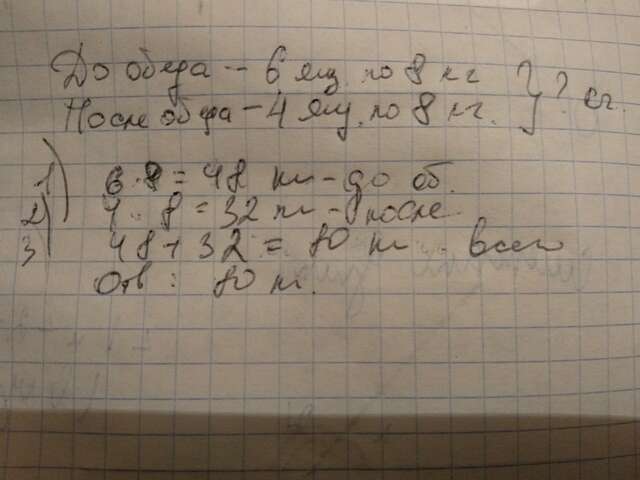 До обеда - 6 ящ. по 8 кг } ? кг.
После обеда - 4 ящ. по 8 кг.
1) 6 · 8 = 48 кг - до об.
2) 4 · 8 = 32 кг - после
3) 48 + 32 = 80 кг всего
Отв : 80 кг.